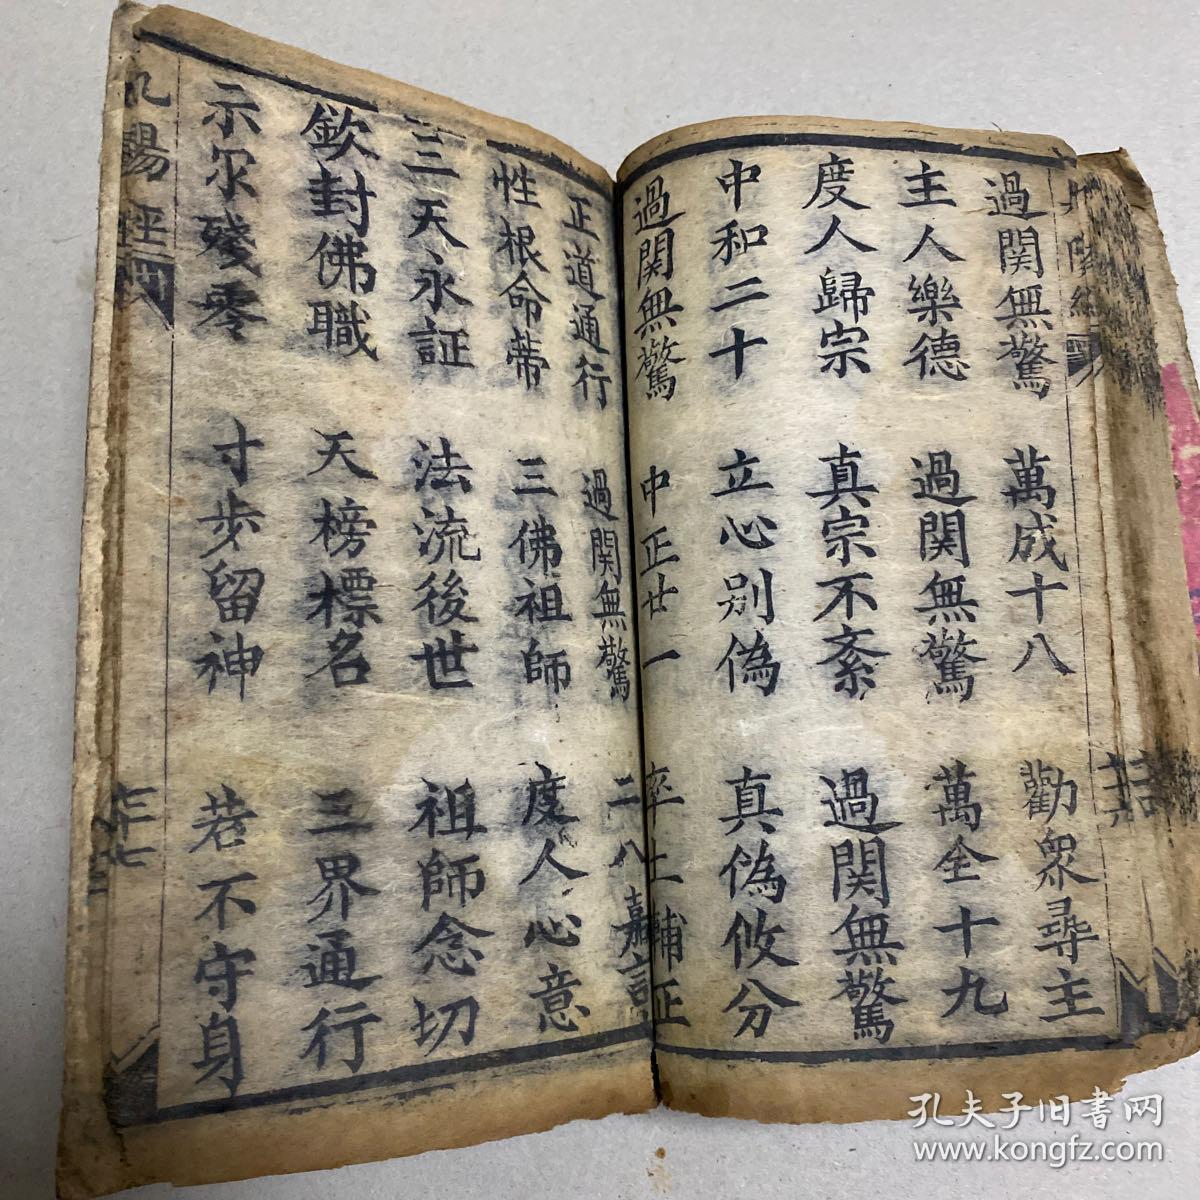 過関無驚 萬成十八 勸衆尋主
主人樂德 過関無驚 萬全十九
度人歸宗 真宗不紊 過関無驚
中和二十 立心别偽 真偽攸分
過関無驚 中正廿一 率土輔正
正道通行 過関無驚 二八嘉言
性根命蒂 三佛祖師 度人心意
三天永証 法流後世 祖師念切
欽封佛職 天榜標名 三界通行
示尔殘零 寸步留神 若不守身
九陽經
孔夫子旧书网
www.kongfz.com